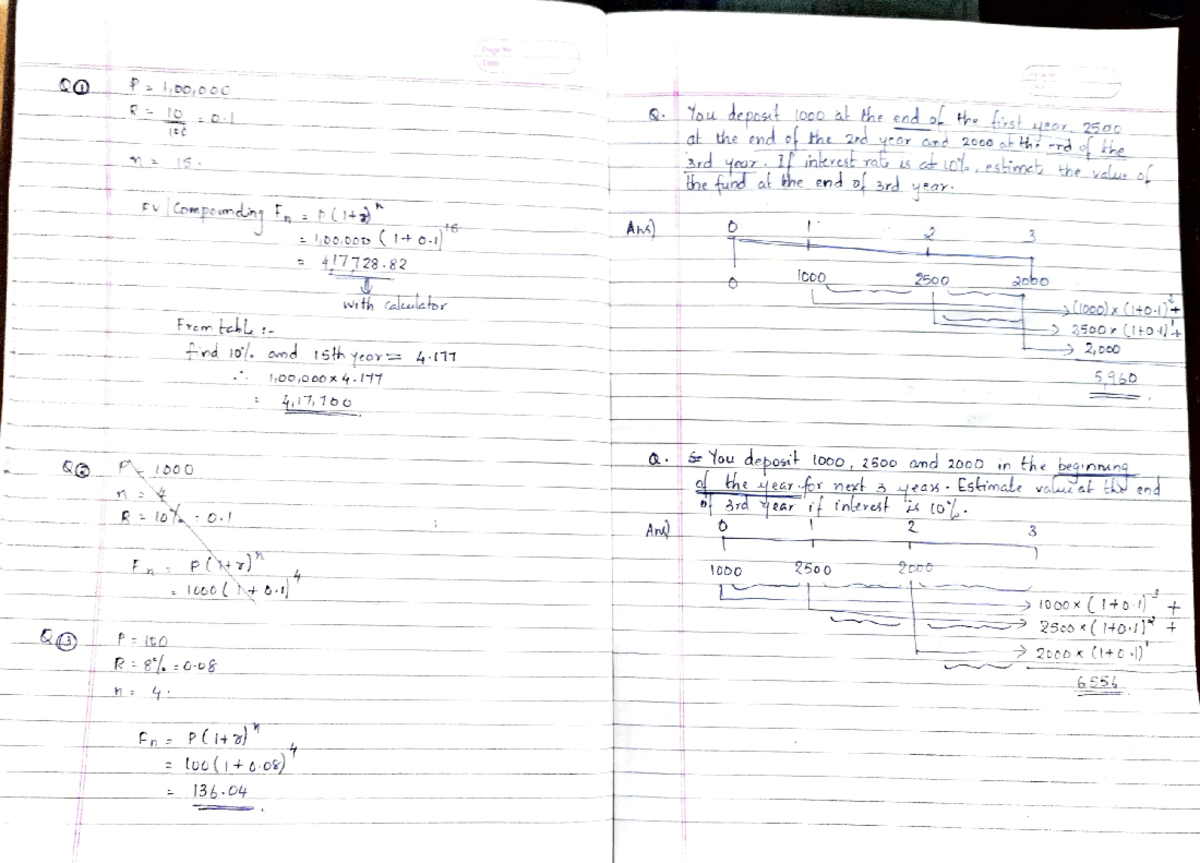 Page No
Date
Q①
P = 1,00,000
R = 10 = 0.1
100
n = 15.
FV | Compounding Fn = P(1+r)^n
= 1,00,000 (1+0.1)^15
= 4,17,728.82
with calculator
From table :-
find 10% and 15th year = 4.177
∴ 1,00,000 x 4.177
= 4,17,700
P = 1000
n = 4
R = 10% = 0.1
Fn = P(1+r)^n
= 1000(1+0.1)^4
P = 100
R = 8% = 0.08
n = 4.
Fn = P(1+r)^n
= 100(1+0.08)^4
= 136.04
Q. You deposit 1000 at the end of the first year, 2500
at the end of the 2nd year and 2000 at the end of the
3rd year. If interest rate is at 10%, estimet the value of
the fund at the end of 3rd year.
Ans) 0 1 2 3
0 1000 2500 2000
→ (1000) x (1+0.1)^2 +
→ 2500 x (1+0.1)^1 +
→ 2,000
5,960
Q. You deposit 1000, 2500 and 2000 in the beginning
of the year for next 3 years. Estimate value at the end
of 3rd year if interest is 10%.
Ans) 0 1 2 3
1000 2500 2000
→ 1000 x (1+0.1)^3 +
→ 2500 x (1+0.1)^2 +
→ 2000 x (1+0.1)^1
6556